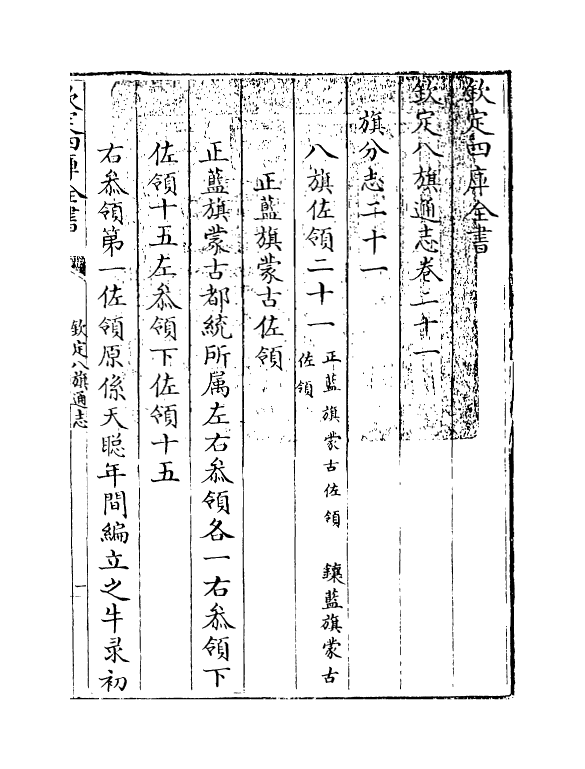 欽定四庫全書
欽定八旗通志卷二十一
旗分志二十一
八旗佐領二十一 正藍旗蒙古佐領 鑲藍旗蒙古
佐領
正藍旗蒙古佐領
正藍旗蒙古都統所属左右叅領各一右叅領下
佐領十五左叅領下佐領十五
右叅領第一佐領原係天聪年間編立之牛录初
欽定四庫全書
欽定八旗通志
一